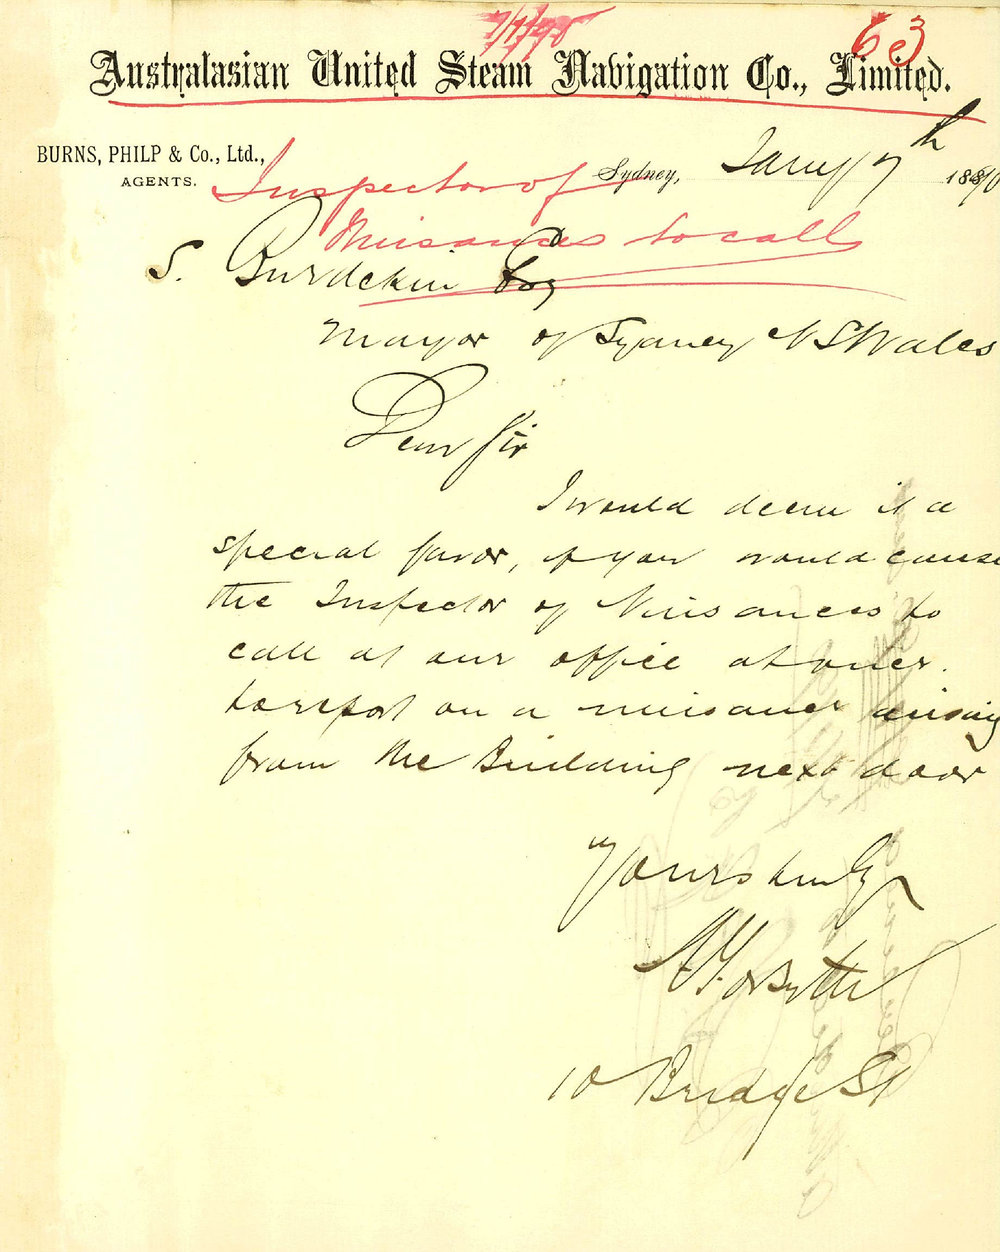 7/1/90
63
Australasian United Steam Navigation Co., Limited.
BURNS, PHILP & Co., Ltd.,
AGENTS.
Sydney, Jany 7th 1890
Inspector of
Nuisances to call
S. Burdekin Esq
Mayor of Sydney N S Wales
Dear Sir
I would deem it a
special favor, if you would cause
the Inspector of Nuisances to
call at our office at once.
to report on a nuisance arising
from the Building next door
Yours truly
A Forsythe
10 Bridge St